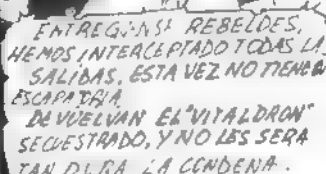 ENTREGUENSE REBELDES,
HEMOS INTERCEPTADO TODAS LA
SALIDAS. ESTA VEZ NO TIENEN
ESCAPATORIA
DEVUELVAN EL "VITALDRON"
SECUESTRADO, Y NO LES SERA
TAN DURA LA CONDENA.